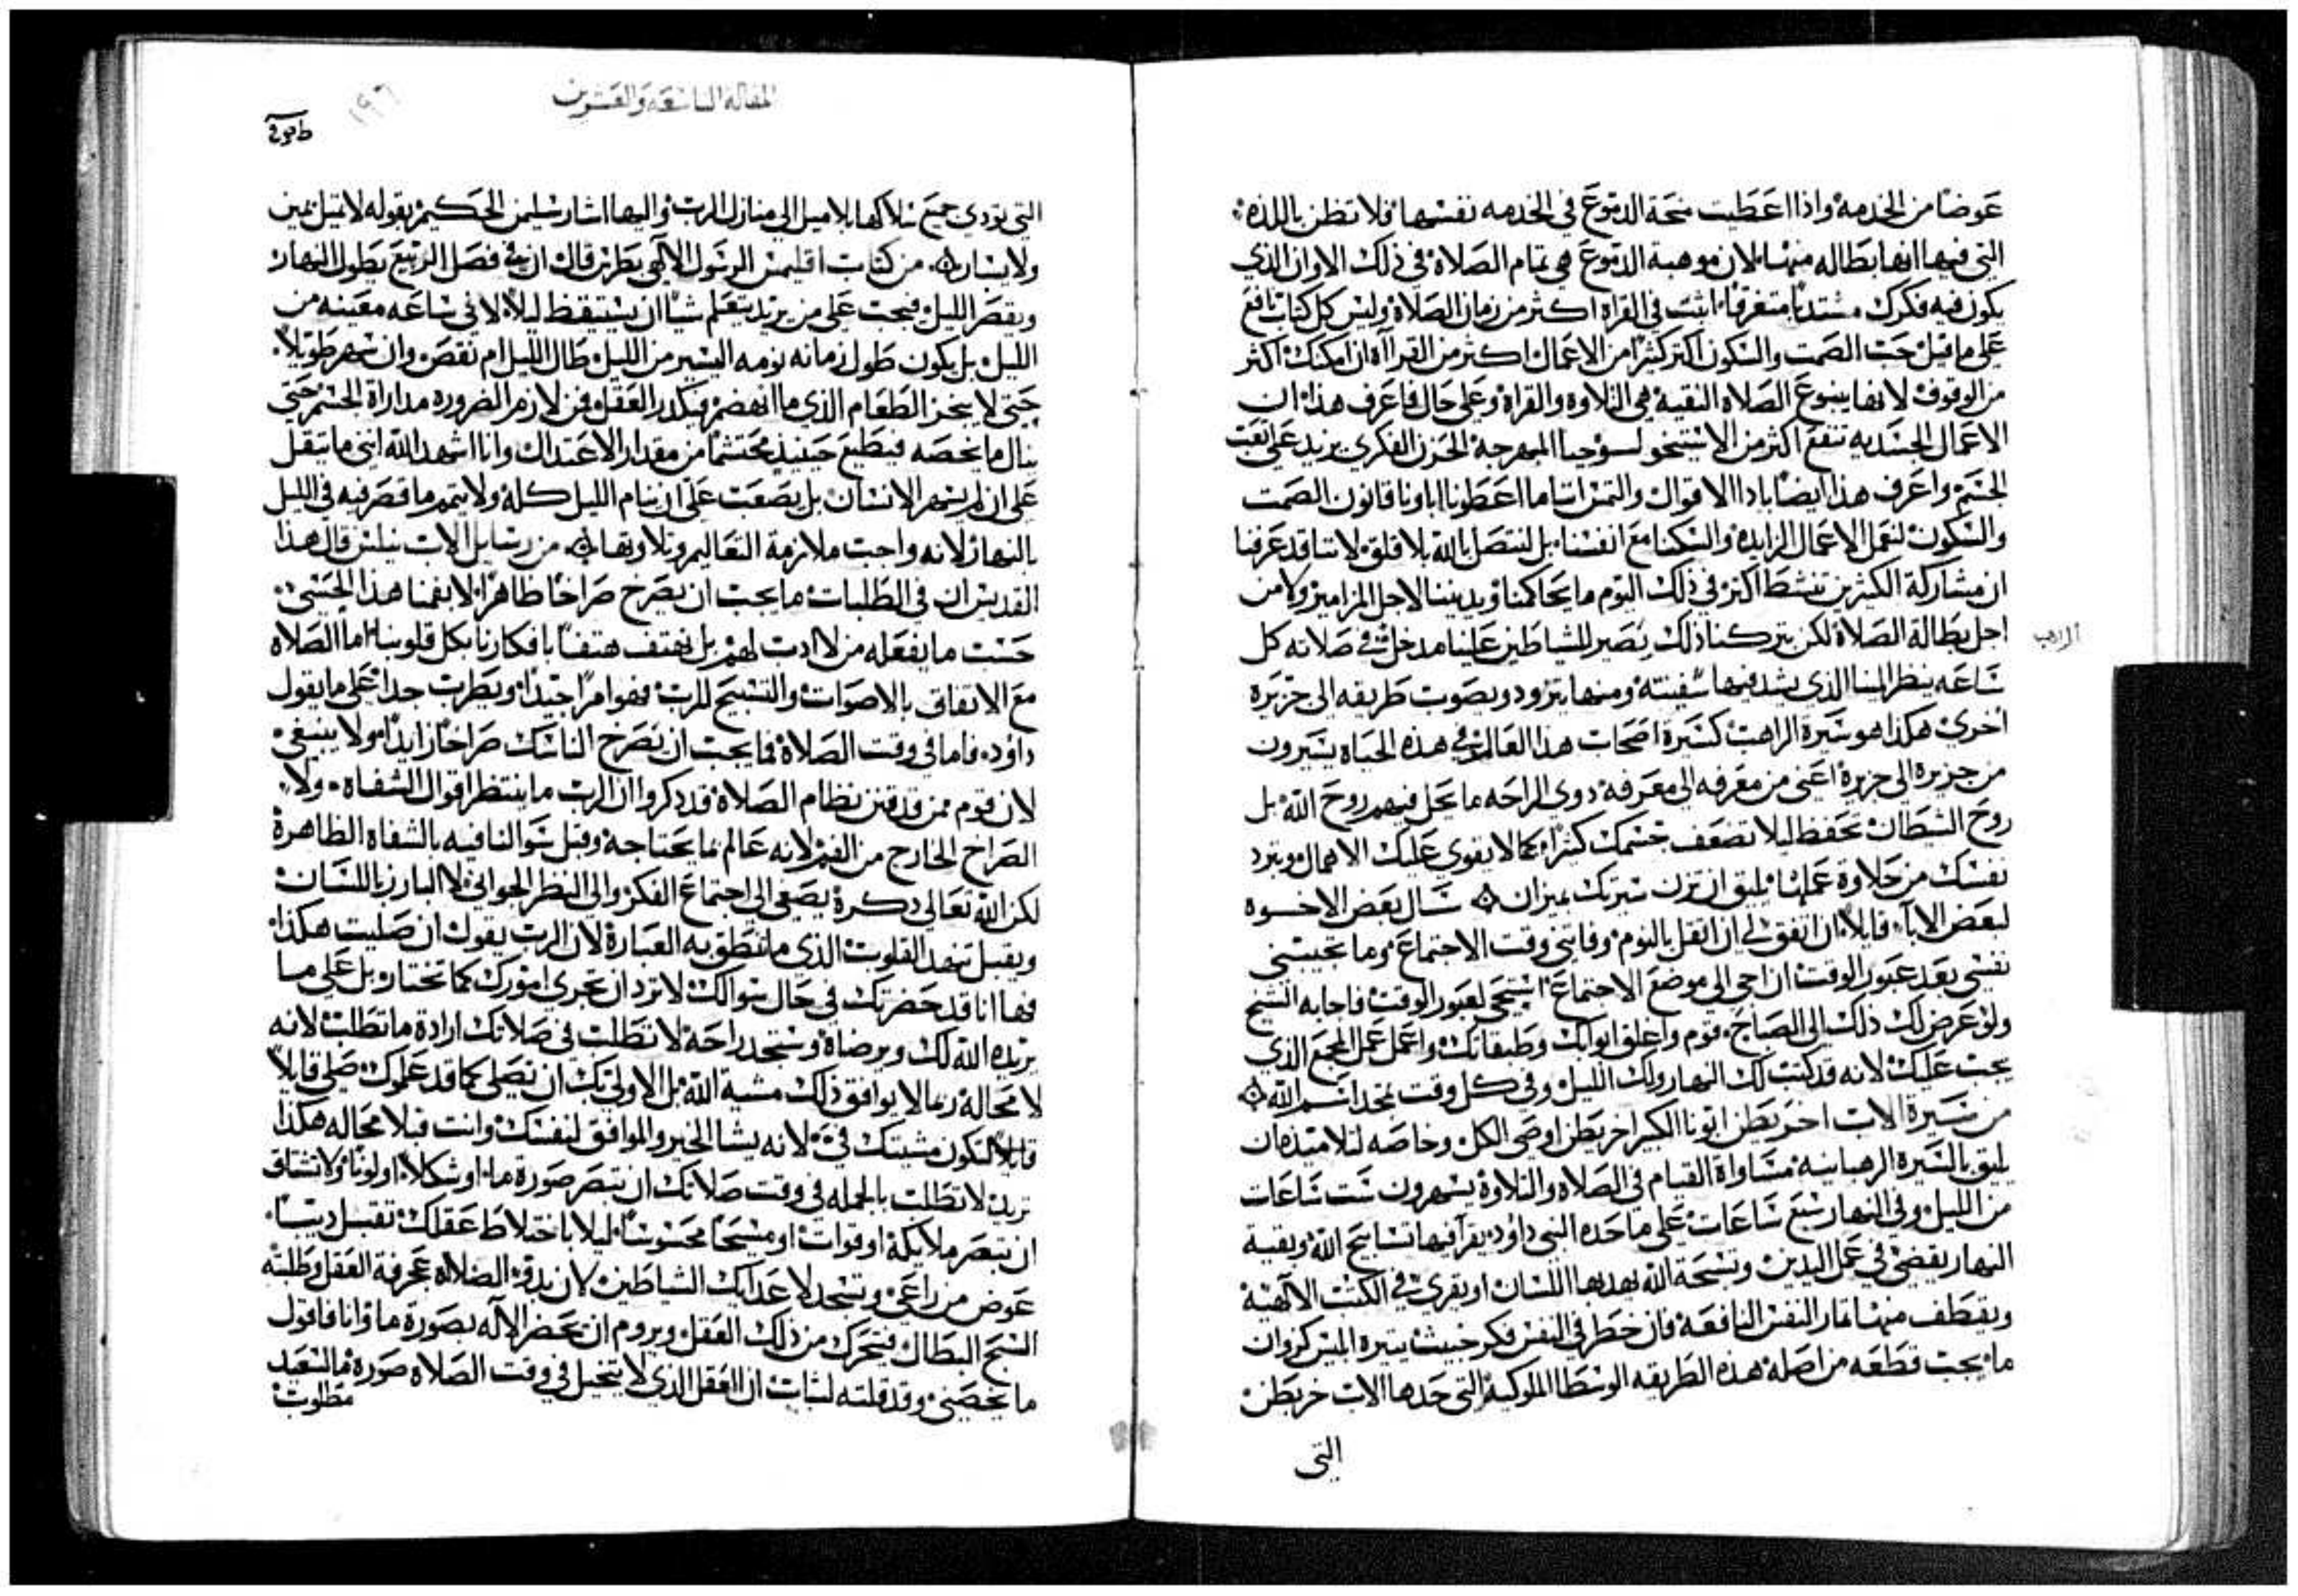 عوضًا من الخدمة واذا اعطيت منحة الدموع في الخدمه نفسها فلا تظن باللذه
التي فيها انها بطاله منها لان موهبة الدموع هي تمام الصلاة في ذلك الاوان الذي
يكون فيه فكرك متفرقًا اثبت في القراة اكثر من زمان الصلاة وليس كل كتاب نافع
على ما قيل حب الصمت والسكون اكتر كثيرًا من الاعمال اكثر من القرااه ان امكنك اكثر
من الوقوف لانها ينبوع الصلاه النقيه هي التلاوه والقراة وعلى حال فاعرف هذا ان
الاعمال الجسديه تنفع اكثر من الحزن الفكري يزيد على تعب
الجسم واعرف هذا ايضًا والتمس اننا ما اعطونا اباونا قانون الصمت
والسكون لنعمل الاعمال الزايده والسكنا مع انفسنا بل لنتصل بالله بلا قلق لاننا قد عرفنا
ان مشاركة الكثيرين تنشط اكثر في ذلك اليوم ما يحاكمنا ويديننا لاجل المزامير ولا من
اجل بطالة الصلاة لكن بتركنا ذلك يصير للشياطين علينا مدخل في صلاته كل
الراهب
ساعه ينظر المينا الذي يشد فيها سفينته ومنها يتزود ويصوب طريقه الى جزيره
اخرى هكذا هو سيرة الراهب كسيرة اصحاب هذا العالم في هذه الحياه يسيرون
من جزيره الى جزيرة اعني من معرفه الى معرفه دوي الراحه ما يحل فيهم روح الله بل
روح الشيطان تحفظ ليلا تضعف جسمك كثيرًا كما لا يقوى عليك الاهمال ويبرد
نفسك من حلاوة عملها يليق ان تزن سيرتك بميزان سال بعض الاخوه
لبعض الابآء قايلًا ان اتفق لي ان اثقل بالنوم وفاتني وقت الاجتماع وما تحبسني
نفسي بعد عبور الوقت ان اجي الى موضع الاجتماع استحي لعبور الوقت فاجابه الشيخ
ولو عرض لك ذلك الى الصباح قوم واغلق ابوابك وطبقاتك واعمل عمل المجمع الذي
يجب عليك لانه قد كتب لك النهار ولك الليل وفي كل وقت يمجد اسم الله
من سيرة الاب اخريطن ابونا الكبير اخريطن اوصى الكل وخاصه لتلاميذه ان
يليق بالسيرة الرهبانيه مساواة القيام في الصلاه والتلاوة يسهرون ست ساعات
من الليل وفي النهار سبع ساعات على ما حده النبي داود يقرا فيها تسابيح الله وبقية
النهار يقضي في عمل اليدين وتسبحة الله يهدبها اللسان او يقرى في الكتب الالهية
ويقطف منها ثمار النفس النافعة فان خطر في النفس فكر خبيث
ما يجب قطعه من اصله هذه الطريقه الوسطا الملوكية التي حدها الاب خريطن
التي
المقاله التاسعه والعشرون
١٩٦
التي تودي جميع سلاكها بلا ميل الى منازل الرب واليها اشار سليمن الحكيم بقوله لا تميل يمين
ولا يسار من كتاب اقليمس الرسول الالهي بطرس قال ان في فصل الربيع يطول النهار
ويقصر الليل فيجب على من يريد يتعلم شيًا ان يستيقظ ليلًا لا في ساعه معينه من
الليل بل يكون طول زمانه نومه اليسير من الليل طال الليل ام نقص وان سهر طويلًا
حتى لا يحز الطعام الذي ما انهضم فيكدر العقل فمن لازم الضروره مداراة الجسم حتى
ينال ما يخصه فيطيع حينيذ محتشمًا من مقدار الاعتدال وانا اشهد الله انني ما يثقل
علي ان لم يسهر الانسان بل يصعب علي ان ينام الليل كله ولا يتمم ما قصر فيه في الليل
بالنهار لانه واجب ملازمة التعاليم وتلاوتها من رسايل الاب نيلس قال هذا
القديس ان في الطلبات ما يجب ان يصرخ صراخًا ظاهرًا لا بفمنا هذا الحسي
حسب ما يفعله من لا ادب لهم بل نهتف هتفًا بافكارنا بكل قلوبنا اما الصلاه
مع الاتفاق بالاصوات والتسبيح للرب فهو امرًا جيدًا ويطرب جدًا على ما يقول
داود فاما في وقت الصلاة فما يجب ان يصرخ الناسك صراخًا زايدًا ولا ينبغي
لان قوم ممن قد نظام الصلاة قد دكروا ان الرب ما ينتظر اقوال الشفاه ولا
الصراخ الخارج من الفم لانه عالم بما يحتاجه وقبل سوالنا فيه بالشفاه الظاهرة
لكن الله تعالى دكرة يصغي الى اجتماع الفكر والى النظر الجواني لا البارز باللسان
ويقبل تنهد القلوب الذي ما تنطق به العبارة لان الرب يقول ان صليت هكذا
فها انا قد حضرتك في حال سوالك لا ترد ان تجري امورك كما تختار بل على ما
يريده الله لك ويرضاه وستجد راحة لا تطلب في صلاتك ارادة ما تطلب لانه
لا محالة ربما لا يوافق ذلك مشية الله بل الاولى بك ان تصلي كما قد علموك صلي قايلًا
قايلًا لتكون مشيتك فيّ لانه يشا الخير والموافق لنفسك وانت فبلا محاله هكذا
تريد لا تطلب بالجمله في وقت صلاتك ان تبصر صورة ما او شكلًا او لونًا ولا تشتاق
ان تبصر ملايكة او قوات او مسيحًا محسوسًا ليلا باختلاط عقلك تقبل ديبًا
عوض من راعي وتسجد لاعدايك الشياطين لان بدو الضلاله عجرفة العقل وطلبه
السبح البطال فيتحرك من ذلك العقل ويروم ان يحضر الاله بصورة ما وانا فاقول
ما يخصني وقد قلته لشبات ان العقل الذي لا يتخيل في وقت الصلاه صورة ما السعيد
مطلوب